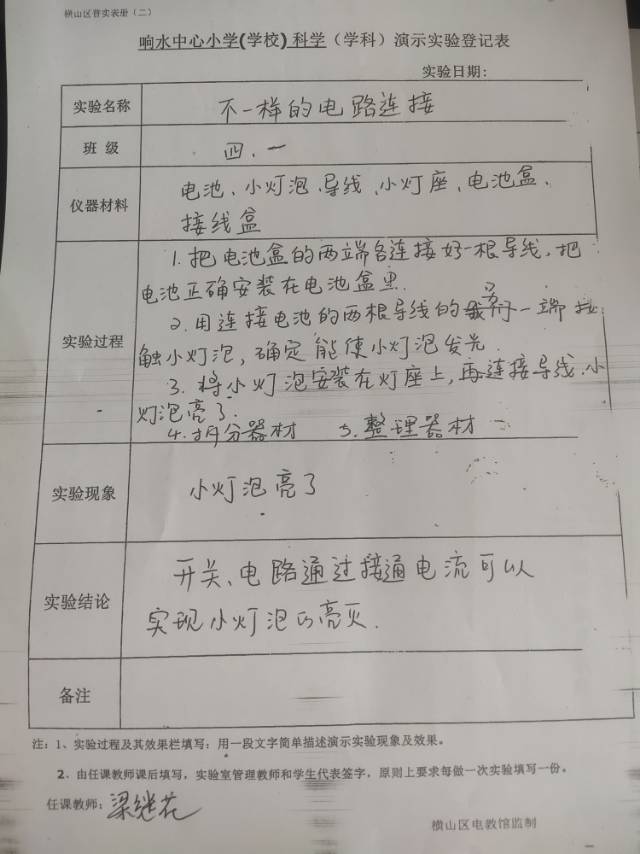 横山区普实表册（二）
响水中心小学(学校) 科学（学科）演示实验登记表
实验日期：
实验名称 不一样的电路连接
班 级 四.一
仪器材料 电池、小灯泡、导线、小灯座、电池盒、
接线盒
1.把电池盒的两端各连接好一根导线，把
电池正确安装在电池盒里.
2.用连接电池的两根导线的另一端接
实验过程 触小灯泡，确定能使小灯泡发光.
3.将小灯泡安装在灯座上，再连接导线.小
灯泡亮了.
4.拆分器材 5.整理器材
实验现象 小灯泡亮了
开关、电路通过接通电流可以
实验结论
实现小灯泡的亮灭.
备注
注：1、实验过程及其效果栏填写：用一段文字简单描述演示实验现象及效果。
2、由任课教师课后填写，实验室管理教师和学生代表签字，原则上要求每做一次实验填写一份。
任课教师：梁继花
横山区电教馆监制